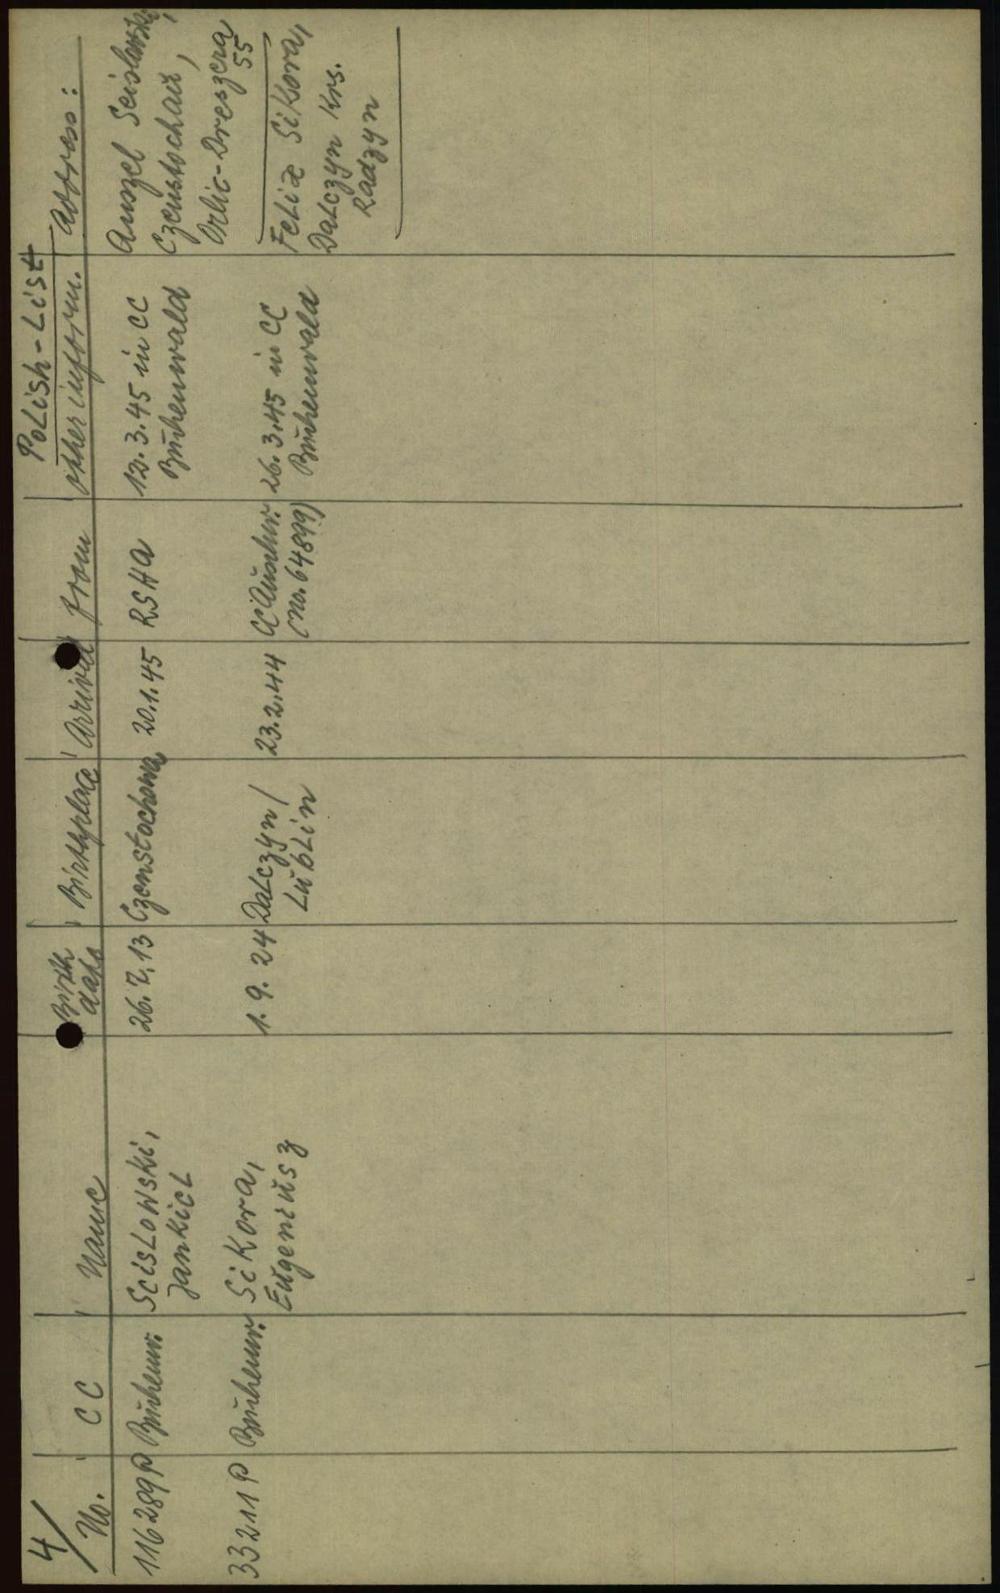 4/
Polish-List
No. CC Name Birth date Birthplace Arrived from other inform. Address:
116289 P Buchenw. Scislowski, Jankiel 26.7.13 Czenstochowa 20.1.45 RSHA 12.3.45 in CC Buchenwald Anszel Scislowski, Czenstochau, Orlic-Dreszera 55
33211 P Buchenw. Sikora, Eugeniusz 1.9.24 Dalczyn/Lublin 23.2.44 CC Auschw. (no. 64899) 26.3.45 in CC Buchenwald Felix Sikora, Dalczyn Krs. Radzyn